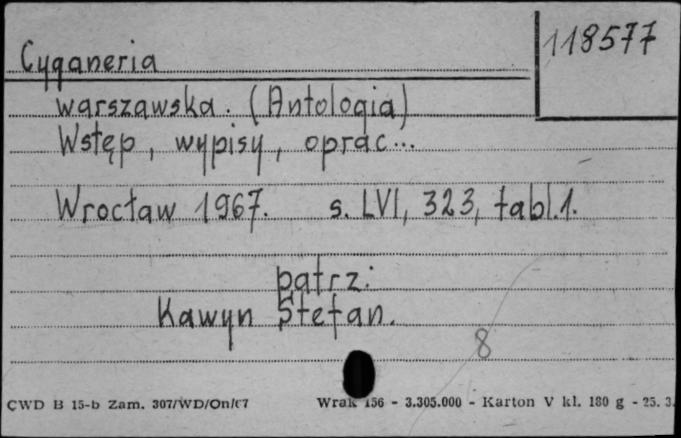 118577
Cyganeria
warszawska. (Antologia)
Wstęp, wypisy, oprac...
Wrocław 1967. s. LVI, 323, tabl.1.
patrz:
Kawyn Stefan.
8
CWD B 15-b Zam. 307/WD/On/67 Wrak 156 - 3.305.000 - Karton V kl. 180 g - 25. 3.